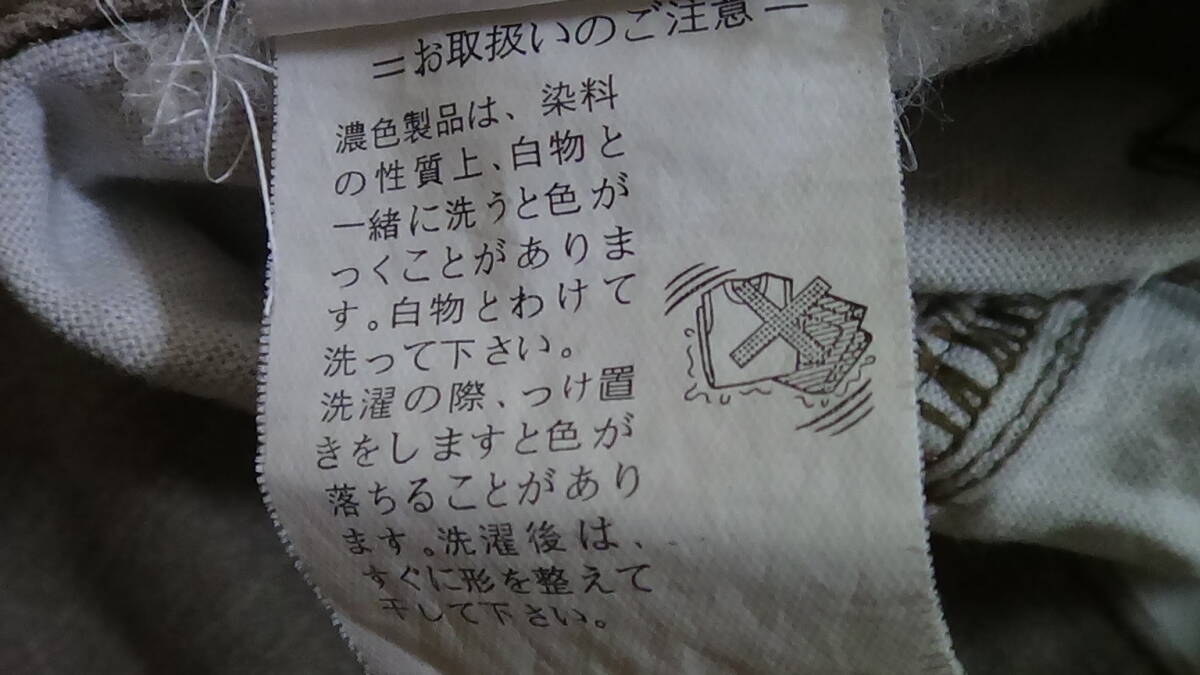 =お取扱いのご注意=
濃色製品は、染料
の性質上、白物と
一緒に洗うと色が
つくことがありま
す。白物とわけて
洗って下さい。
洗濯の際、つけ置
きをしますと色が
落ちることがあり
ます。洗濯後は、
すぐに形を整えて
干して下さい。